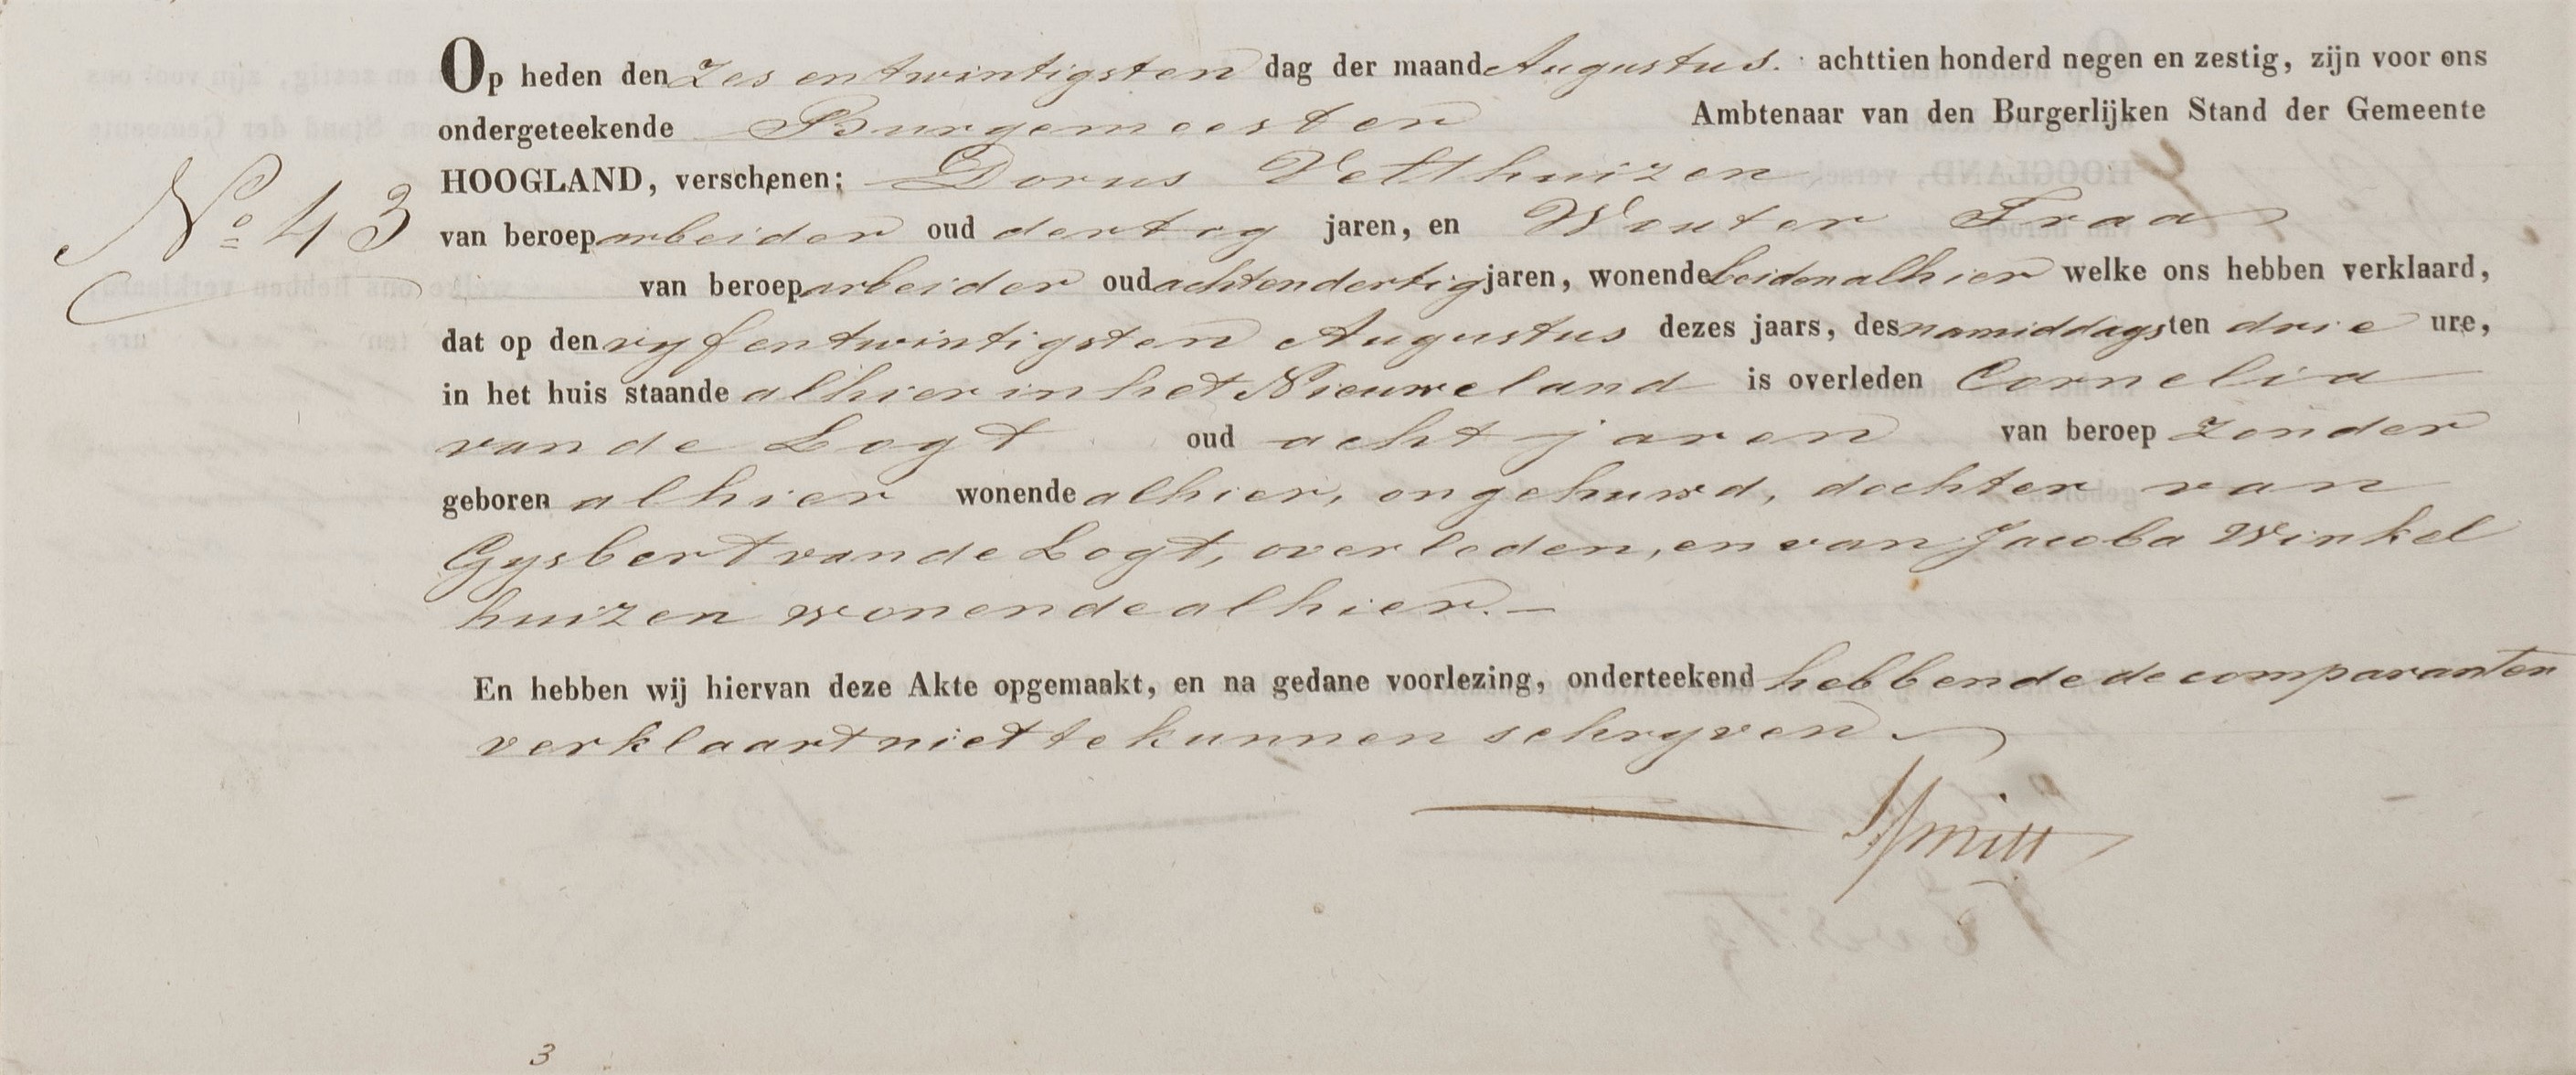 Op heden den zes en twintigsten dag der maand Augustus. achttien honderd negen en zestig, zijn voor ons
ondergeteekende Burgemeester Ambtenaar van den Burgerlijken Stand der Gemeente
HOOGLAND, verschenen; Dorus Velthuizen
No 43
van beroep arbeider oud dertig jaren, en Wouter Traa
van beroep arbeider oud achtendertig jaren, wonende beiden alhier welke ons hebben verklaard,
dat op den vyfentwintigsten Augustus dezes jaars, des namiddags ten drie ure,
in het huis staande alhier in het Nieuweland is overleden Cornelia
van de Logt oud acht jaren van beroep zonder
geboren alhier wonende alhier, ongehuwd, dochter van
Gysbert van de Logt, overleden, en van Jacoba Winkel
huizen wonende alhier.—
En hebben wij hiervan deze Akte opgemaakt, en na gedane voorlezing, onderteekend hebbende de comparanten
verklaart niet te kunnen schryven
Smitt
3